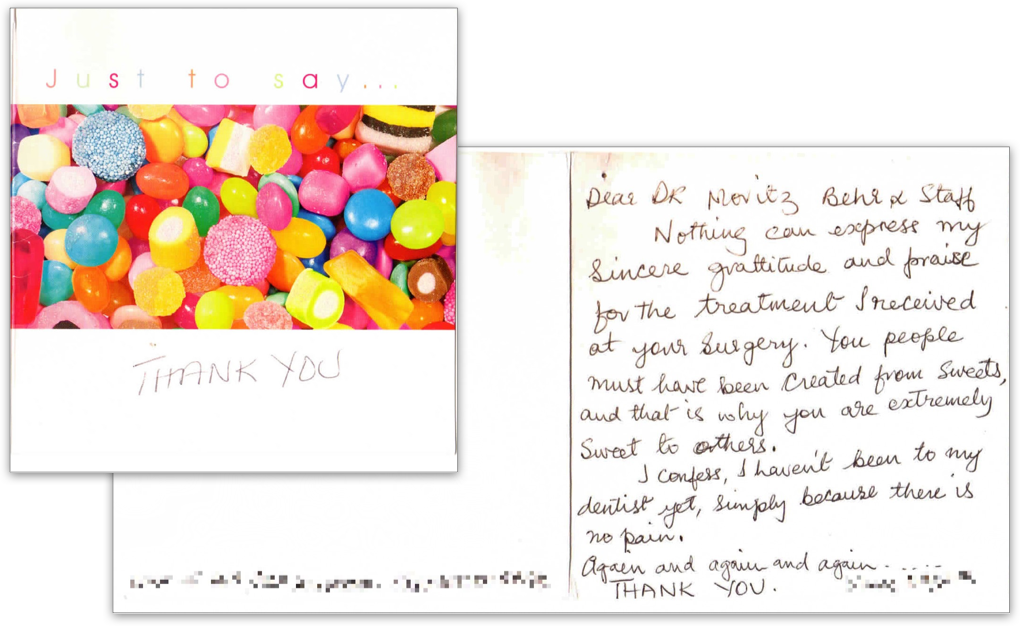 Just to say...
THANK YOU
Dear DR Moritz Behr & Staff
Nothing can express my
sincere grattitude and praise
for the treatment I received
at your surgery. You people
must have been created from sweets,
and that is why you are extremely
sweet to others.
I confess, I haven't been to my
dentist yet, simply because there is
no pain.
Again and again and again.....
THANK YOU.